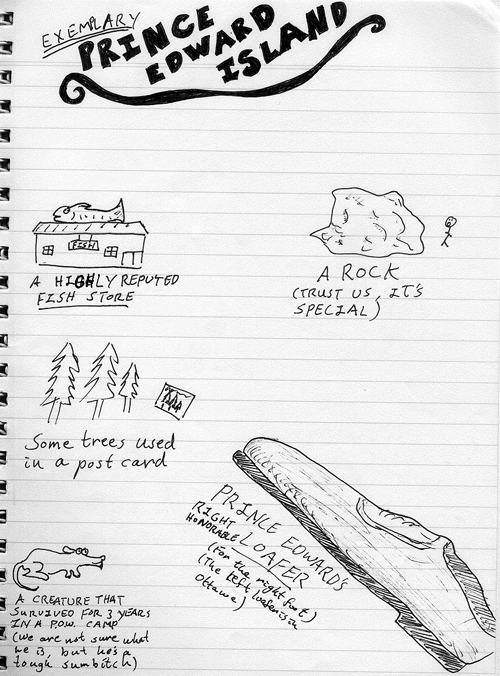 EXEMPLARY
PRINCE
EDWARD
ISLAND
FISH
A HIGHLY REPUTED
FISH STORE
A ROCK
(TRUST US, IT'S
SPECIAL)
Some trees used
in a post card
PRINCE EDWARD'S
RIGHT
HONORABLE LOAFER
(For the right foot)
(The left loafer is in
Ottawa)
A CREATURE THAT
SURVIVED FOR 3 YEARS
IN A P.O.W. CAMP
(we are not sure what
he is, but he's a
tough sumbitch)